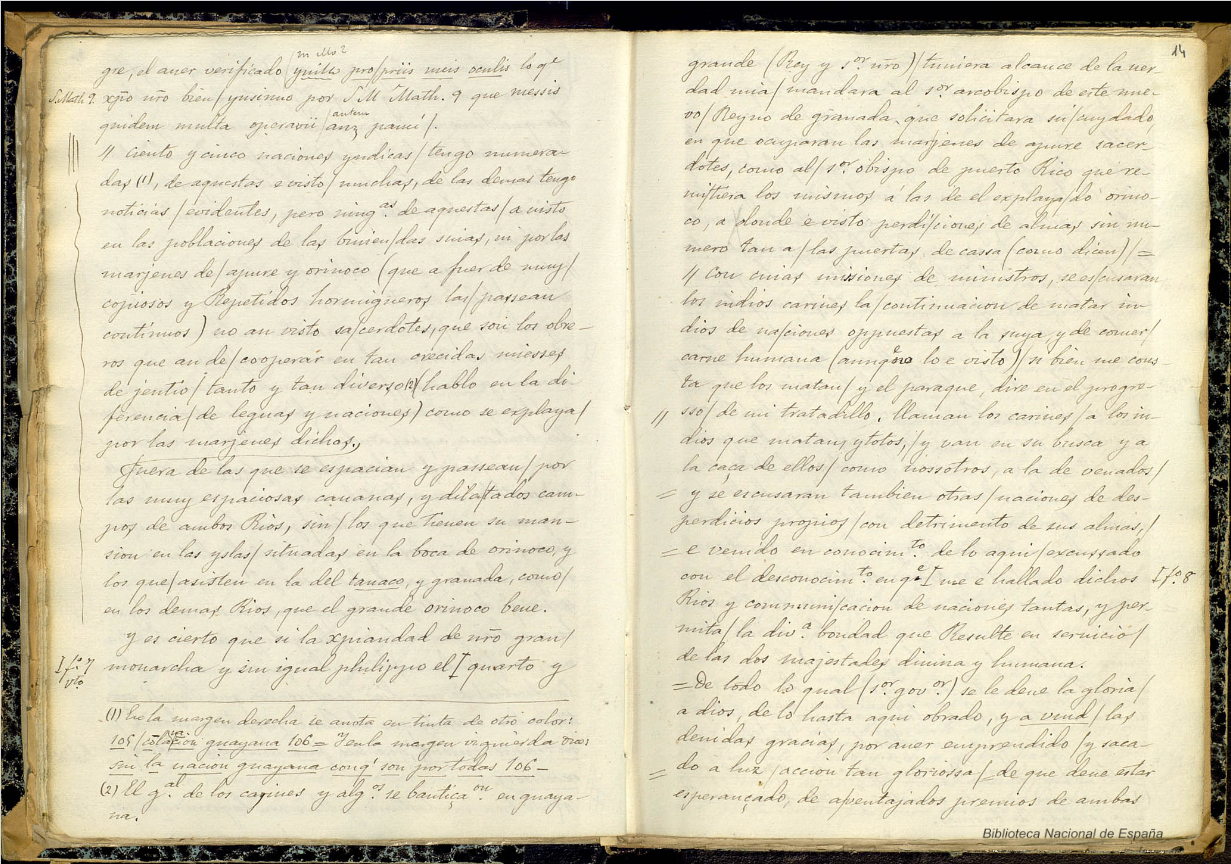 in Mo?
gre, el auer verificado /ynilla pro/priis meis oculis lo q.e
S. Math. 9. xp̄o nr̄o bien /ynsinuo por S. M. Math. 9 que messis
autem
quidem multa operarii /anz pauci/.
〃 ciento y cinco naciones yndicas / tengo numera-
das (1), de aquestas e visto / muchas, de las demas tengo
noticias / evidentes, pero ning.as de aquestas / a visto
en las poblaciones de las vivien/das suias, ni por las
marjenes de / apure y orinoco (que a fuer de muy /
copiosos y Repetidos hormigueros las / passean
contínuos) no an visto sa/cerdotes, que son los obre-
ros que an de / cooperar en tan crecidas miesses
de jentio / tanto y tan diverso (2) / (hablo en la di-
ferencia / de leguas y naciones) como se explaya /
por las marjenes dichas,
Fuera de las que se espacian y passean / por
las muy espaciosas çauanas, y dila/tados cam-
pos de ambos Rios, sin / los que tienen su man-
sion en las yslas / situadas en la boca de orinoco, y
los que / asisten en la del tauaco, y granada, como /
en los demas Rios, que el grande orinoco beue.
y es cierto que si la xp̄iandad de nr̄o gran /
I f.o 7 v.to monarcha y sin igual philippo el I quarto y
(1) En la margen derecha se anota en tinta de otro color:
105 / cola nación guayana 106 = Y en la margen izquierda dice:
sin la nación guayana conq.e son por todas 106 –
(2) El g.al de los carines y alg.os se bautiça.on en guaya-
na.
14
grande (Rey y s.or nr̄o) / tuuiera alcance de la uer-
dad mia / mandara al s.or arcobispo de este nue-
vo / Reyno de granada, que solicitara su / cuydado,
en que ocuparan las marjenes de apure sacer-
dotes, como al / s.or obispo de puerto Rico que re-
mi/tiera los mismos á las de el explaya/do orino-
co, a donde e visto perdi/ciones de almas sin nu-
mero tan a / las puertas de cassa (como dicen) / =
〃 con cuias missiones de ministros, se es/cusaran
los indios carines la / continuacion de matar in-
dios de na/ciones oppuestas a la suya, y de comer /
carne humana (aunq.e no lo e visto) / si bien me cons-
ta que los matan / y el paraque, dire en el progre-
sso / de mi tratadillo. llaman los carines / a los in-
〃 dios que matan, ytotos, / y van en su busca y a
la caça de ellos / como nossotros, a la de venados /
= y se escusaran tambien otras / naciones de des-
perdicios propios / con detrimento de sus almas, /
= e venido en conocim.to de lo aqui / excussado
con el desconocim.to en q.e I me e hallado dichos I f.o 8
Rios y communi/cacion de naciones tantas, y per-
mita / la div.a bondad que Resulte en servicio /
de las dos majestades diuina y humana.
= De todo lo qual (s.or gov.or) se le deue la gloria /
a dios, de lo hasta aqui obrado, y a vmd / las
deuidas gracias, por auer emprendido / y saca-
= do a luz / accion tan gloriossa / de que deue estar
esperançado, de a/ventajados premios de ambas
Biblioteca Nacional de España